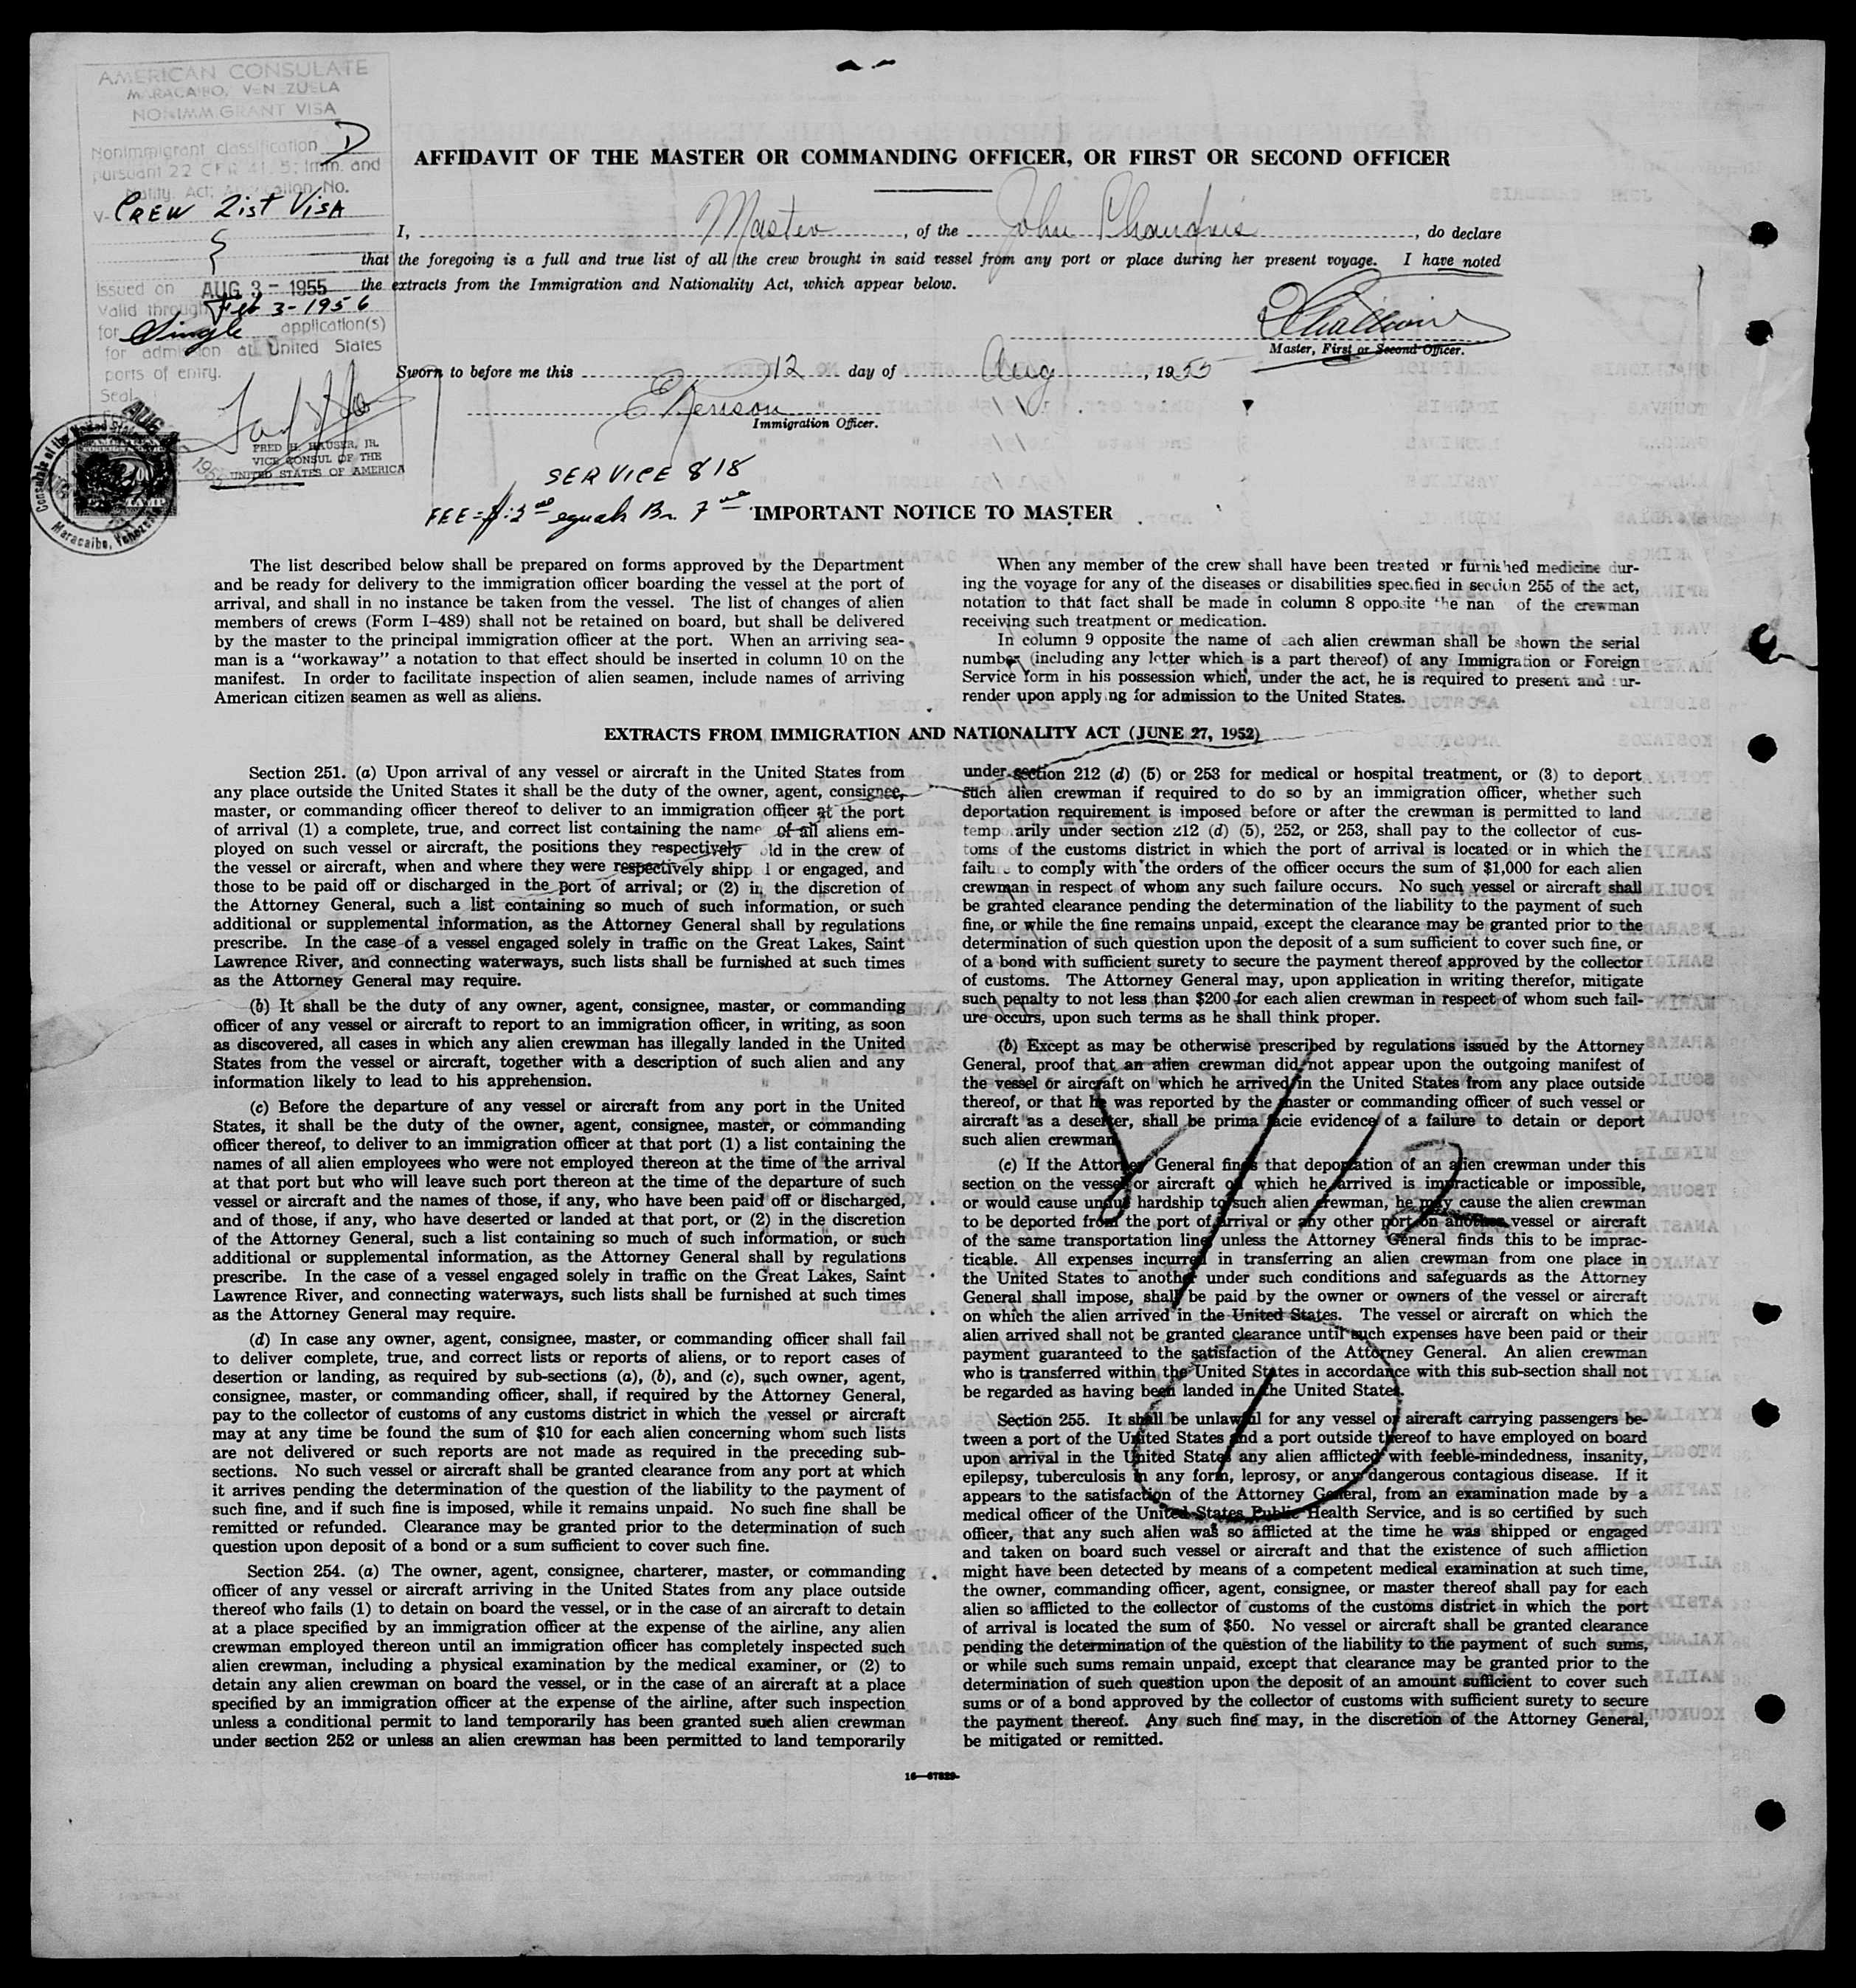 AMERICAN CONSULATE
MARACAIBO, VENEZUELA
NONIMMIGRANT VISA
Nonimmigrant classification D
pursuant 22 CFR 41.5; Imm. and
Natlity. Act; Application No.
V- CREW List VISA
Issued on AUG 3 - 1955
Valid through Feb 3-1956
for Single application(s)
for admission at United States
ports of entry.
Seal
FRED H. HAUSER, JR.
VICE CONSUL OF THE
UNITED STATES OF AMERICA
Consulate of the United States
Maracaibo, Venezuela
AFFIDAVIT OF THE MASTER OR COMMANDING OFFICER, OR FIRST OR SECOND OFFICER
I, Master, of the John Chandris, do declare
that the foregoing is a full and true list of all the crew brought in said vessel from any port or place during her present voyage. I have noted
the extracts from the Immigration and Nationality Act, which appear below.
Master, First or Second Officer.
Sworn to before me this 12 day of Aug, 1955
Immigration Officer.
SERVICE 818
FEE=$:2 equals Bs. 7
IMPORTANT NOTICE TO MASTER
The list described below shall be prepared on forms approved by the Department
and be ready for delivery to the immigration officer boarding the vessel at the port of
arrival, and shall in no instance be taken from the vessel. The list of changes of alien
members of crews (Form I–489) shall not be retained on board, but shall be delivered
by the master to the principal immigration officer at the port. When an arriving sea-
man is a “workaway” a notation to that effect should be inserted in column 10 on the
manifest. In order to facilitate inspection of alien seamen, include names of arriving
American citizen seamen as well as aliens.
When any member of the crew shall have been treated or furnished medicine dur-
ing the voyage for any of the diseases or disabilities specified in section 255 of the act,
notation to that fact shall be made in column 8 opposite the nam of the crewman
receiving such treatment or medication.
In column 9 opposite the name of each alien crewman shall be shown the serial
number (including any letter which is a part thereof) of any Immigration or Foreign
Service form in his possession which, under the act, he is required to present and sur-
render upon applying for admission to the United States.
EXTRACTS FROM IMMIGRATION AND NATIONALITY ACT (JUNE 27, 1952)
Section 251. (a) Upon arrival of any vessel or aircraft in the United States from
any place outside the United States it shall be the duty of the owner, agent, consignee,
master, or commanding officer thereof to deliver to an immigration officer at the port
of arrival (1) a complete, true, and correct list containing the name of all aliens em-
ployed on such vessel or aircraft, the positions they respectively held in the crew of
the vessel or aircraft, when and where they were respectively shipped or engaged, and
those to be paid off or discharged in the port of arrival; or (2) in the discretion of
the Attorney General, such a list containing so much of such information, or such
additional or supplemental information, as the Attorney General shall by regulations
prescribe. In the case of a vessel engaged solely in traffic on the Great Lakes, Saint
Lawrence River, and connecting waterways, such lists shall be furnished at such times
as the Attorney General may require.
(b) It shall be the duty of any owner, agent, consignee, master, or commanding
officer of any vessel or aircraft to report to an immigration officer, in writing, as soon
as discovered, all cases in which any alien crewman has illegally landed in the United
States from the vessel or aircraft, together with a description of such alien and any
information likely to lead to his apprehension.
(c) Before the departure of any vessel or aircraft from any port in the United
States, it shall be the duty of the owner, agent, consignee, master, or commanding
officer thereof, to deliver to an immigration officer at that port (1) a list containing the
names of all alien employees who were not employed thereon at the time of the arrival
at that port but who will leave such port thereon at the time of the departure of such
vessel or aircraft and the names of those, if any, who have been paid off or discharged,
and of those, if any, who have deserted or landed at that port, or (2) in the discretion
of the Attorney General, such a list containing so much of such information, or such
additional or supplemental information, as the Attorney General shall by regulations
prescribe. In the case of a vessel engaged solely in traffic on the Great Lakes, Saint
Lawrence River, and connecting waterways, such lists shall be furnished at such times
as the Attorney General may require.
(d) In case any owner, agent, consignee, master, or commanding officer shall fail
to deliver complete, true, and correct lists or reports of aliens, or to report cases of
desertion or landing, as required by sub-sections (a), (b), and (c), such owner, agent,
consignee, master, or commanding officer, shall, if required by the Attorney General,
pay to the collector of customs of any customs district in which the vessel or aircraft
may at any time be found the sum of $10 for each alien concerning whom such lists
are not delivered or such reports are not made as required in the preceding sub-
sections. No such vessel or aircraft shall be granted clearance from any port at which
it arrives pending the determination of the question of the liability to the payment of
such fine, and if such fine is imposed, while it remains unpaid. No such fine shall be
remitted or refunded. Clearance may be granted prior to the determination of such
question upon deposit of a bond or a sum sufficient to cover such fine.
Section 254. (a) The owner, agent, consignee, charterer, master, or commanding
officer of any vessel or aircraft arriving in the United States from any place outside
thereof who fails (1) to detain on board the vessel, or in the case of an aircraft to detain
at a place specified by an immigration officer at the expense of the airline, any alien
crewman employed thereon until an immigration officer has completely inspected such
alien crewman, including a physical examination by the medical examiner, or (2) to
detain any alien crewman on board the vessel, or in the case of an aircraft at a place
specified by an immigration officer at the expense of the airline, after such inspection
unless a conditional permit to land temporarily has been granted such alien crewman
under section 252 or unless an alien crewman has been permitted to land temporarily
under section 212 (d) (5) or 253 for medical or hospital treatment, or (3) to deport
such alien crewman if required to do so by an immigration officer, whether such
deportation requirement is imposed before or after the crewman is permitted to land
temporarily under section 212 (d) (5), 252, or 253, shall pay to the collector of cus-
toms of the customs district in which the port of arrival is located or in which the
failure to comply with the orders of the officer occurs the sum of $1,000 for each alien
crewman in respect of whom any such failure occurs. No such vessel or aircraft shall
be granted clearance pending the determination of the liability to the payment of such
fine, or while the fine remains unpaid, except the clearance may be granted prior to the
determination of such question upon the deposit of a sum sufficient to cover such fine, or
of a bond with sufficient surety to secure the payment thereof approved by the collector
of customs. The Attorney General may, upon application in writing therefor, mitigate
such penalty to not less than $200 for each alien crewman in respect of whom such fail-
ure occurs, upon such terms as he shall think proper.
(b) Except as may be otherwise prescribed by regulations issued by the Attorney
General, proof that an alien crewman did not appear upon the outgoing manifest of
the vessel or aircraft on which he arrived in the United States from any place outside
thereof, or that he was reported by the master or commanding officer of such vessel or
aircraft as a deserter, shall be prima facie evidence of a failure to detain or deport
such alien crewman.
(c) If the Attorney General finds that deportation of an alien crewman under this
section on the vessel or aircraft on which he arrived is impracticable or impossible,
or would cause undue hardship to such alien crewman, he may cause the alien crewman
to be deported from the port of arrival or any other port on another vessel or aircraft
of the same transportation line, unless the Attorney General finds this to be imprac-
ticable. All expenses incurred in transferring an alien crewman from one place in
the United States to another under such conditions and safeguards as the Attorney
General shall impose, shall be paid by the owner or owners of the vessel or aircraft
on which the alien arrived in the United States. The vessel or aircraft on which the
alien arrived shall not be granted clearance until such expenses have been paid or their
payment guaranteed to the satisfaction of the Attorney General. An alien crewman
who is transferred within the United States in accordance with this sub-section shall not
be regarded as having been landed in the United States.
Section 255. It shall be unlawful for any vessel or aircraft carrying passengers be-
tween a port of the United States and a port outside thereof to have employed on board
upon arrival in the United States any alien afflicted with feeble-mindedness, insanity,
epilepsy, tuberculosis in any form, leprosy, or any dangerous contagious disease. If it
appears to the satisfaction of the Attorney General, from an examination made by a
medical officer of the United States Public Health Service, and is so certified by such
officer, that any such alien was so afflicted at the time he was shipped or engaged
and taken on board such vessel or aircraft and that the existence of such affliction
might have been detected by means of a competent medical examination at such time,
the owner, commanding officer, agent, consignee, or master thereof shall pay for each
alien so afflicted to the collector of customs of the customs district in which the port
of arrival is located the sum of $50. No vessel or aircraft shall be granted clearance
pending the determination of the question of the liability to the payment of such sums,
or while such sums remain unpaid, except that clearance may be granted prior to the
determination of such question upon the deposit of an amount sufficient to cover such
sums or of a bond approved by the collector of customs with sufficient surety to secure
the payment thereof. Any such fine may, in the discretion of the Attorney General,
be mitigated or remitted.
8/12
1
16—67829-